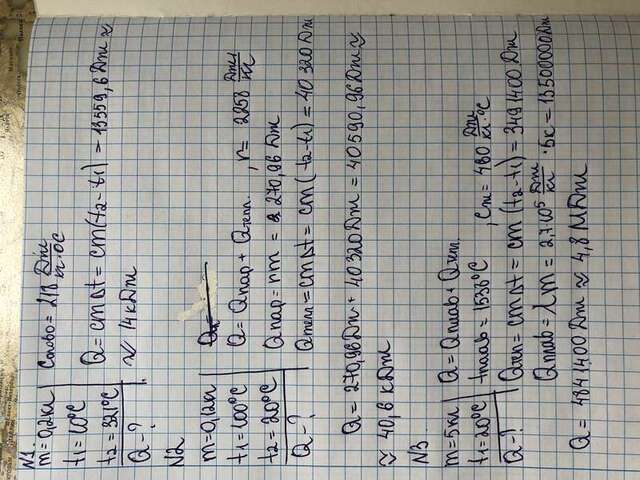 N1.
m=0,2кг
t1=10°C
t2=321°C
Q-?
Cолово=218 Дж/кг·°C
Q=cmΔt=cm(t2-t1)=13559,6Дж≈
≈14кДж
N2
m=0,12кг
t1=100°C
t2=20°C
Q-?
Q=Qпар+Qтепл., r=2258 Дж/кг
Qпар=rm=270,96Дж
Qтепл=cmΔt=cm(t2-t1)=40320Дж
Q=270,96Дж+40320Дж=40590,96Дж≈
≈40,6кДж
N3
m=5кг
t1=20°C
Q-?
Q=Qплав+Qтепл.
tплав=1538°C, Cж=460 Дж/кг·°C
Qтеп=cmΔt=cm(t2-t1)=3491400Дж
Qплав=λm=2,7·10⁵ Дж/кг·5к=13500000Дж
Q=4841400Дж≈4,8МДж